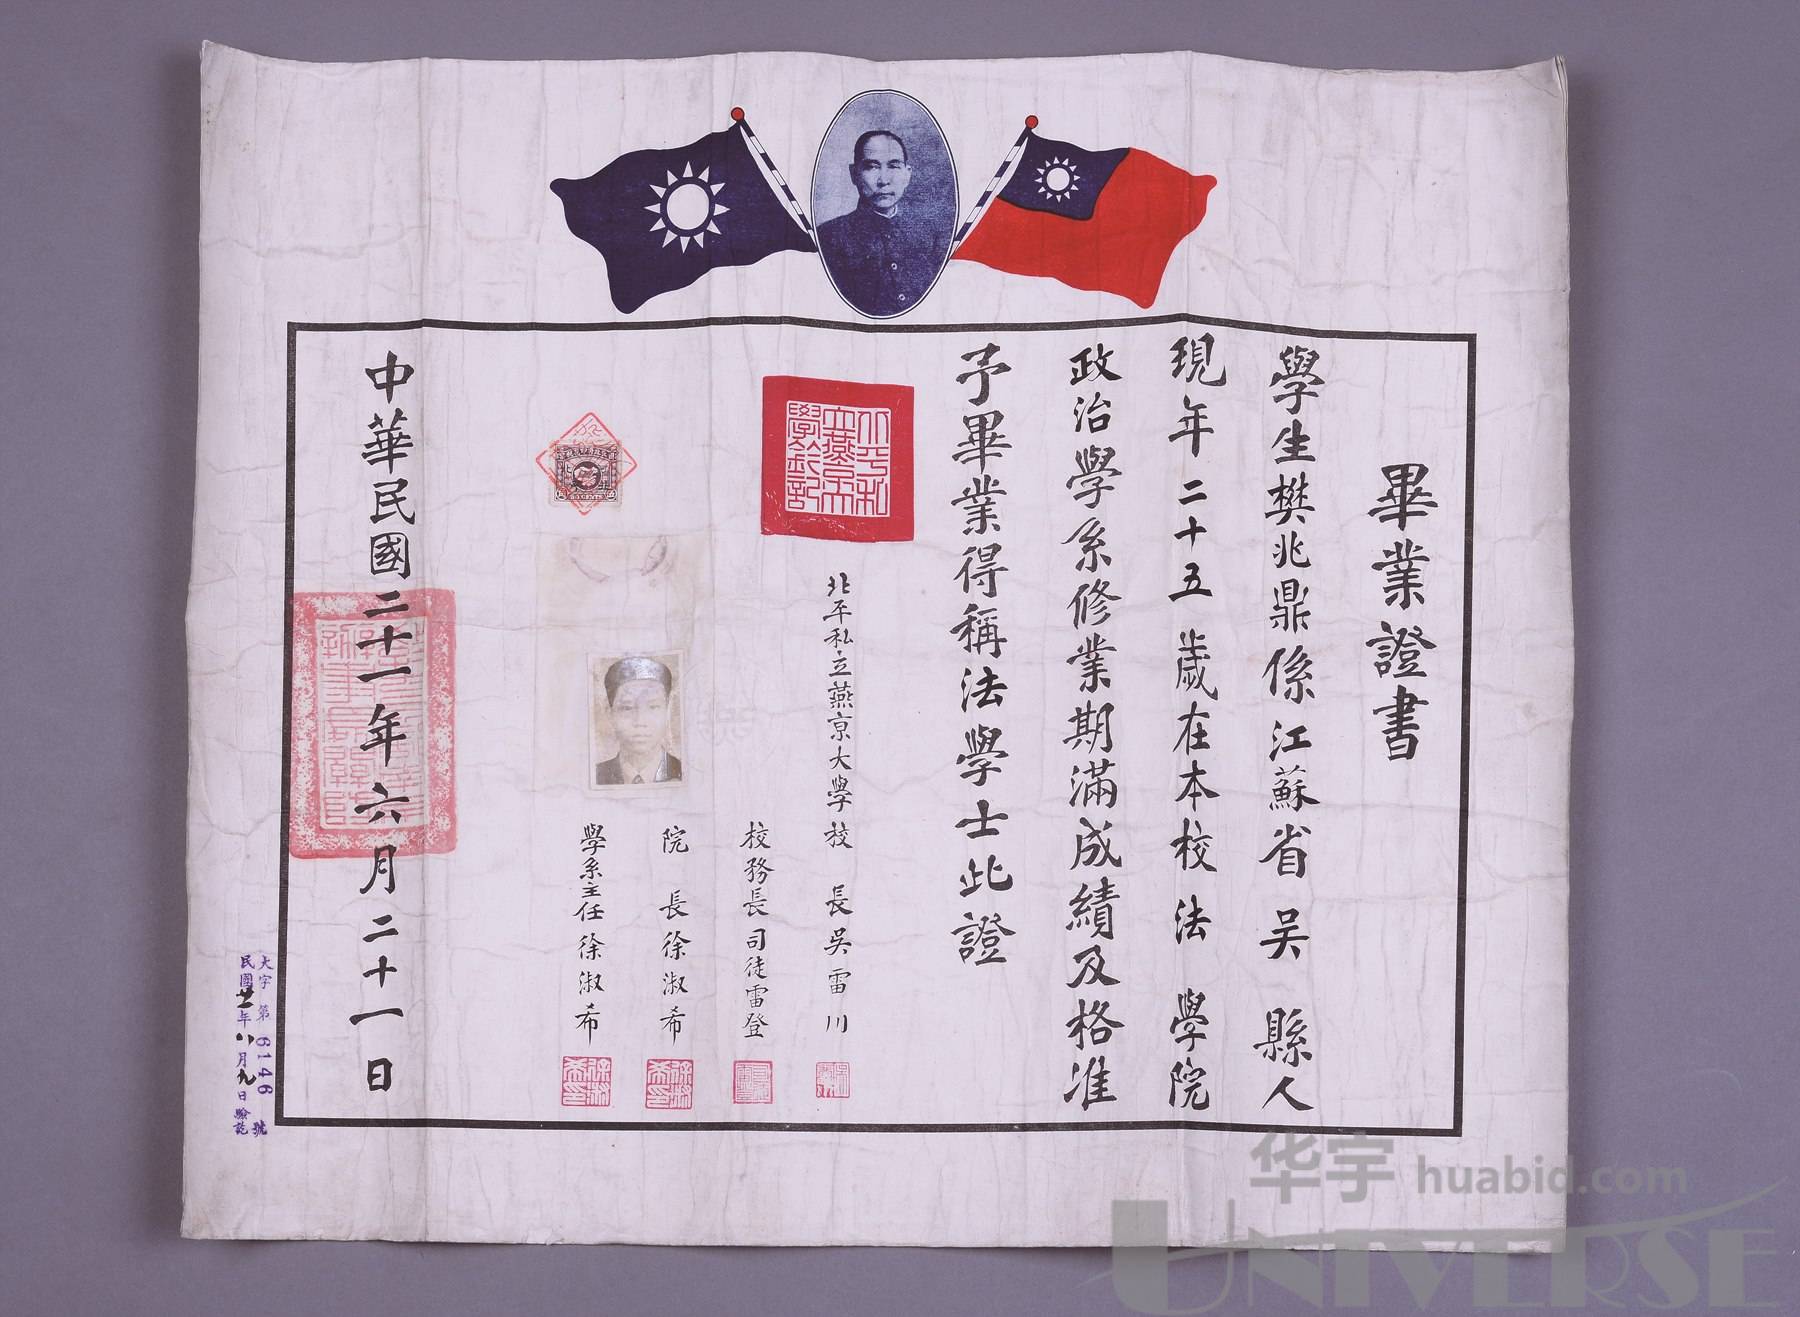 畢業證書
學生樊兆鼎係江蘇省吳縣人
現年二十五歲在本校法學院
政治學系修業期滿成績及格准
予畢業得稱法學士此證
北平私立燕京大學鈐記
北平私立燕京大學校長吳雷川
校務長司徒雷登
院長徐淑希
學系主任徐淑希
徐淑希印
徐淑希印
中華民國二十一年六月二十一日
大字第6146號
民國廿一年八月九日驗訖
华宇 huabid.com
UNIVERSE